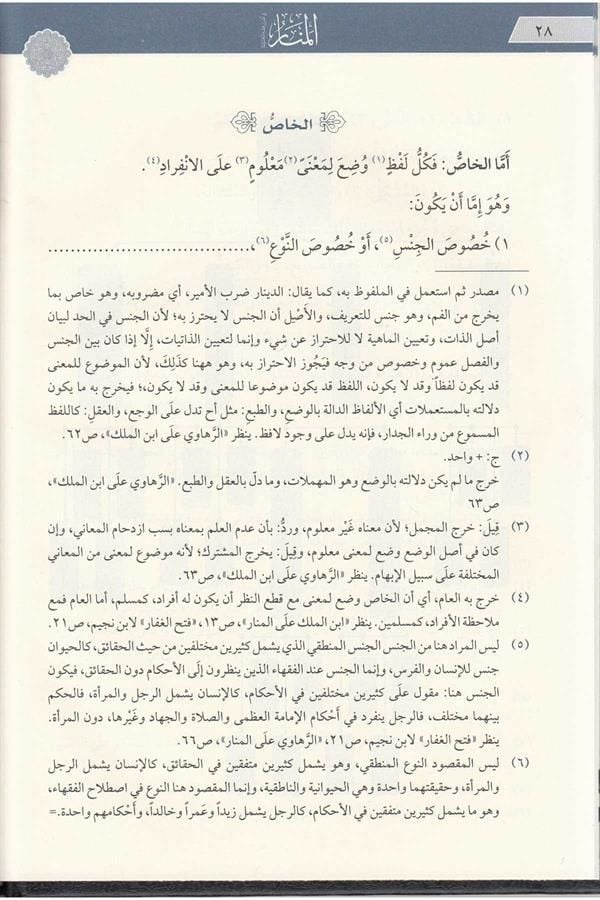 ٢٨
المنار
الخاصُّ
أَمَّا الخاصُّ: فَكُلُّ لَفْظٍ(١) وُضِعَ لِمَعْنًى(٢) مَعْلُومٍ(٣) علَى الانْفِرادِ(٤).
وَهُوَ إِمَّا أَنْ يَكُونَ:
١) خُصُوصَ الجِنْسِ(٥)، أَوْ خُصُوصَ النَّوْعِ(٦)، .................................
(١) مصدر ثم استعمل في الملفوظ به، كما يقال: الدينار ضرب الأمير، أي مضروبه، وهو خاص بما
يخرج من الفم، وهو جنس للتعريف، والأصْيل أن الجنس لا يحترز به؛ لأن الجنس في الحد لبيان
أصل الذات، وتعيين الماهية لا للاحتراز عن شيء وإنما لتعيين الذاتيات، إلَّا إذا كان بين الجنس
والفصل عموم وخصوص من وجه فيَجُوز الاحتراز به، وهو ههنا كذَلِكَ، لأن الموضوع للمعنى
قد يكون لفظاً وقد لا يكون، اللفظ قد يكون موضوعا للمعنى وقد لا يكون،؛ فيخرج به ما يكون
دلالته بالمستعملات أي الألفاظ الدالة بالوضع، والطبع: مثل أح تدل علَى الوجع، والعقل: كاللفظ
المسموع من وراء الجدار، فإنه يدل على وجود لافظ. ينظر «الرَّهاوي علَى ابن الملك»، ص٦٢.
(٢) ج: + واحد.
خرج ما لم يكن دلالته بالوضع وهو المهملات، وما دلّ بالعقل والطبع. «الرَّهاوي علَى ابن الملك»،
ص٦٣
(٣) قِيلَ: خرج المجمل؛ لأن معناه غَيْر معلوم، وردُّ: بأن عدم العلم بمعناه بسب ازدحام المعاني، وإن
كان في أصل الوضع وضع لمعنى معلوم، وقِيلَ: يخرج المشترك؛ لأنه موضوع لمعنى من المعاني
المختلفة علَى سبيل الإبهام. ينظر «الرَّهاوي علَى ابن الملك»، ص٦٣.
(٤) خرج به العام، أي أن الخاص وضع لمعنى مع قطع النظر أن يكون له أفراد، كمسلم، أما العام فمع
ملاحظة الأفراد، كمسلمين. ينظر «ابن الملك علَى المنار»، ص١٣، «فتح الغفار» لابن نجيم، ص٢١.
(٥) ليس المراد هنا من الجنس الجنس المنطقي الذي يشمل كثيرين مختلفين من حيث الحقائق، كالحيوان
جنس للإنسان والفرس، وإنما الجنس عند الفقهاء الذين ينظرون إلَى الأحكام دون الحقائق، فيكون
الجنس هنا: مقول علَى كثيرين مختلفين في الأحكام، كالإنسان يشمل الرجل والمرأة، فالحكم
بينهما مختلف، فالرجل ينفرد في أحْكام الإمامة العظمى والصلاة والجهاد وغَيْرها، دون المرأة.
ينظر «فتح الغفار» لابن نجيم، ص٢١، «الرَّهاوي علَى المنار»، ص٦٦.
(٦) ليس المقصود النوع المنطقي، وهو يشمل كثيرين متفقين في الحقائق، كالإنسان يشمل الرجل
والمرأة، وحقيقتهما واحدة وهي الحيوانية والناطقية، وإنما المقصود هنا النوع في اصطلاح الفقهاء،
وهو ما يشمل كثيرين متفقين في الأحكام، كالرجل يشمل زيداً وعَمراً وخالداً، وأحْكامهم واحدة.=